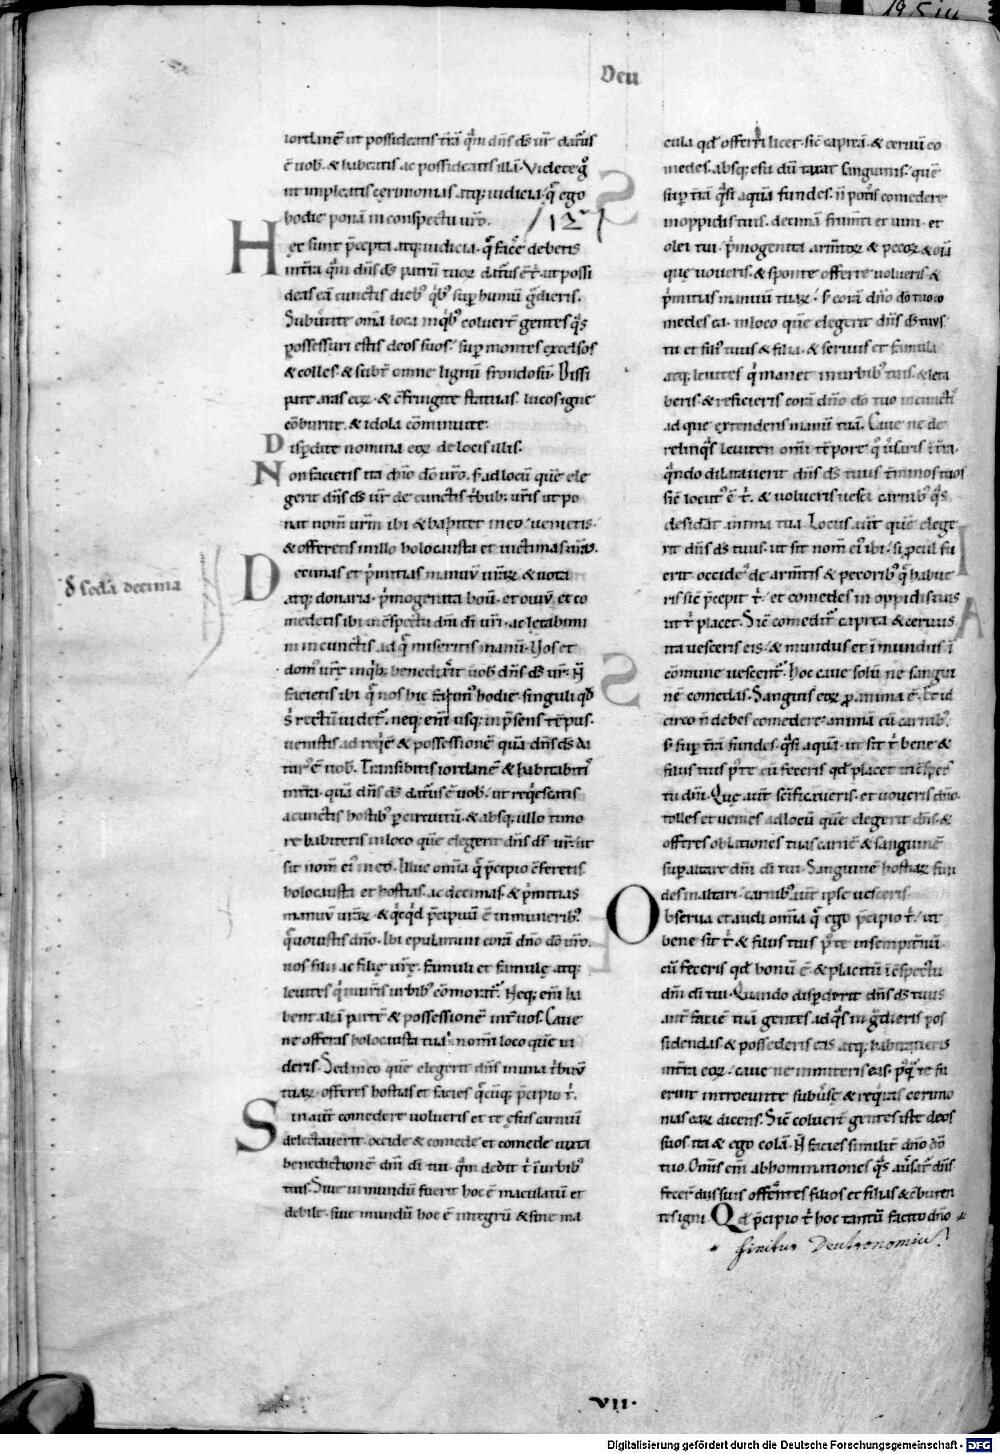 Deu
iordanē ut possideatis t̄rā q̄m dn̄s ds̄ ur̄ daturꝰ
ē uob̄. & habeatis ac possideatis illā. Videte g̊
ut impleatis cęrimonias atq; iudicia. q̄ ego
hodie ponā in conspectu ur̄o.
12
Hęc sunt p̄cepta atq; iudicia. q̄ facē debetis
in t̄ra q̄m dn̄s ds̄ patrū tuoꝝ daturꝰ ē t̄. ut possi
deas eā cunctis diebꝰ qͥbꝰ suꝑ humū gͣdieris.
Subūtite om̄a loca in qͥbꝰ coluer̄ gentes q̄s
possessuri estis deos suos. suꝑ montes excelsos
& colles. & subt̄ omne lignū frondosū. Dissi
pate aras eoꝝ & c̄fringite statuas. lucos igne
cōburite. & idola cōminuite.
Disꝑdite nomina eoꝝ de locis illis.
Non facietis ita dn̄o dō ur̄o. s; ad locū quē ele
gerit dn̄s ds̄ ur̄ de cunctis t̄bub; ur̄is ut po
nat nom̄ ur̄m ibi & habitet in eo. uenietis.
& offeretis in illo holocausta et uictimas ur̄as.
Decimas et p̄mitias manuū ur̄aꝝ & uota
atq; donaria. p̄mogenita boū. et ouiū. et co
medetis ibi in c̄spectu dn̄i di ur̄i. ac lętabimi
ni in cunctis ad q̄ miseritis manū. Uos et
domꝰ ur̄ę in qͥb; benedix̄it uob̄ dn̄s ds̄ ur̄. N̄
facietis ibi q̄ nos hic facimꝰ hodie singuli qd̄
s̄ rectū uidet̄. neq; eni usq; in p̄sens tēpus.
uenistis ad reqͥē & possessionē quā dn̄s ds̄ da
turꝰ ē uob̄. Transibitis iordanē & habitabitꝭ
in t̄ra. quā dn̄s ds̄ daturꝰ ē uob̄. ut reqͥescatis
a cunctis hostibꝰ ꝑ circuitū. & absq; ullo timo
re habitetis in loco quē elegerit dn̄s ds̄ ur̄. ut
sit nom̄ eiꝰ in eo. Illuc omīa q̄ p̄cipio c̄feretis
holocausta et hostias. ac decimas. & p̄mitias
manuū ur̄aꝝ. & qͥcqͥd p̄cipuū ē in muneribꝰ.
q̄ uouistis dn̄o. Ibi epulamini corā dn̄o dō ur̄o.
uos filii ac filię ur̄ę. famuli et famulę atq;
leuites qͥ in ur̄is urbibꝰ cōmorat̄. Neq; eni ha
bent aliā partē & possessionē int̄ uos. Caue
ne offeras holocausta tua in om̄i loco quē ui
deris. Sed in eo quē elegerit dn̄s in una t̄buū
tuaꝝ. offeres hostias et facies q̄cūq; p̄cipio t̄.
Sin aut̄ comedere uolueris et te ęsus carniū
delectauerit. occide & comede et comede iuxta
benedictionē dn̄i di tui. q̄m dedit t̄ ī urbibꝰ
tuis. Siue inmundū fuerit hoc ē maculatū et
debile. siue mundū hoc ē integrū & sine ma
δ sed̄a decima
cula qd̄ offerri licet. sic̄ capreā. & ceruū co
medes. absq; esu dū taxat sanguinis. quē
suꝑ t̄rā q̄si aquā fundes. n̄ potꝭ comedere
in oppidis tuis. decimā frumti et uini. et
olei tui. p̄mogenita armtoꝝ & pecoꝝ. & om̄ia
quę uoueris. & sponte offerre uolueris &
p̄mitias manuū tuaꝝ. s; corā dn̄o dō tuo co
medes ea. in loco quē elegerit dn̄s ds̄ tuus
tu et filiꝰ tuus & filia. & seruus et famula
atq; leuites qͥ manet in urbibꝰ tuis. & leta
beris. & reficieris corā dn̄o dō tuo in cunctꝭ
ad que extenderis manū tuā. Caue ne de
relinqͣs leuiten om̄i tēpore. qͦ ūsaris ī t̄ra.
q̄ndo dilatauerit dn̄s ds̄ tuus t̄minos tuos
sic̄ locutꝰ ē t̄. & uolueris uesci carnibꝰ q̄s
desid̄at anima tua. Locus aut̄ quē elege
rit dn̄s ds̄ tuus. ut sit nom̄ eiꝰ ibi. si ꝓcul fu
erit. occides de armtis & pecoribꝰ q̄ habue
ris sic̄ p̄cepit t̄. et comedes in oppidis tuis
ut t̄ placet. Sic̄ comedit̄ caprea & ceruus.
ita uesceris eis. & mundus et īmundus ī
cōmune uescent̄. hoc caue solū ne sangui
nē comedas. Sanguis eoꝝ ꝓ anima ē. Et id
circo n̄ debes comedere animā cū carnibꝰ.
s; suꝑ t̄rā fundes. q̄si aquā. ut sit t̄ bene &
filiis tuis p̄ te cū feceris qd̄ placet in c̄spec
tu dn̄i. Quę aut̄ sc̄ificaueris. et uoueris dn̄o.
tolles et uenies ad locū quē elegerit dn̄s. &
offeres oblationes tuas carnē & sanguinē
suꝑ altare dn̄i di tui. Sanguinē hostiaꝝ fun
des in altari. carnibꝰ aut̄ ipse uesceris.
Obserua et audi om̄ia q̄ ego p̄cipio t̄. ut
bene sit t̄ & filiis tuis p̄ te in sempit̄nū.
cū feceris qd̄ bonū ē & placitū ī c̄spectu
dn̄i di tui. Quando disꝑderit dn̄s ds̄ tuus
ante faciē tuā gentes ad q̄s in gͣdieris pos
sidendas. & possederis eas. atq; habitaueris
in t̄ra eoꝝ. caue ne imiteris eas. p̄q̄ te fu
erint introeunte subūsę & reqͥras cerimo
nias eaꝝ dicens. Sic̄ coluer̄ gentes iste deos
suos ita & ego colā. N̄ facies similit̄ dn̄o dō
tuo. Omīs eni abhominationes q̄s aūsat̄ dn̄s
fecer̄ diis suis offerentes filios et filias & cōburen
tes igni. Qd̄ p̄cipio t̄ hoc tantū facito dn̄o
finitur Deutronomiu
VII.
Digitalisierung gefördert durch die Deutsche Forschungsgemeinschaft - DFG